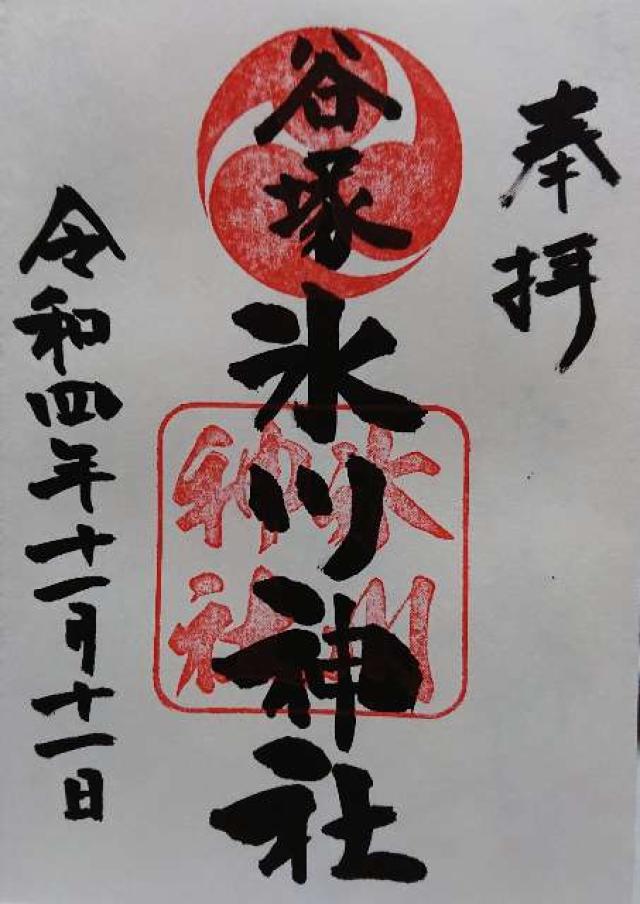 奉拝
谷塚氷川神社
氷川
神社
令和四年十一月十一日